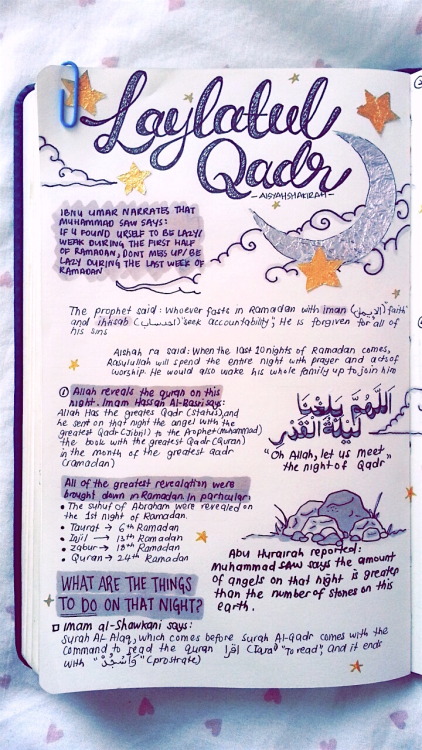 Laylatul
Qadr
- AISYAHSHAKIRAH -
IBNU UMAR NARRATES THAT
MUHAMMAD SAW SAYS:
IF U FOUND URSELF TO BE LAZY/
WEAK DURING THE FIRST HALF
OF RAMADAN, DONT MESS UP/ BE
LAZY DURING THE LAST WEEK OF
RAMADAN
The prophet said: Whoever fasts in Ramadan with iman (الإيمان) "faith"
and ihtisab (احتساب) "seek accountability", He is forgiven for all of
his sins
Aishah ra said: When the last 10 nights of Ramadan comes,
Rasulullah will spend the entire night with prayer and acts of
worship. He would also wake his whole family up to join him
① Allah reveals the quran on this
night. Imam Hassan Al-Basri says:
Allah Has the greatest Qadr (status), and
he sent on that night the angel with the
greatest Qadr (Jibril) to the Prophet (Muhammad)
the book with the greatest Qadr (Quran)
in the month of the greatest qadr
(ramadan)
اللهم بلغنا
ليلة القدر
"Oh Allah, let us meet
the night of Qadr"
All of the greatest revelation were
brought down in Ramadan. In particular:
• The suhuf of Abraham were revealed on
the 1st night of Ramadan.
• Taurat → 6th Ramadan
• Injil → 13th Ramadan
• Zabur → 18th Ramadan
• Quran → 24th Ramadan
Abu Hurairah reported:
Muhammad SAW says the amount
of angels on that night is greater
than the number of stones on this
earth.
WHAT ARE THE THINGS
TO DO ON THAT NIGHT?
Imam al-Shawkani says:
Surah Al-Alaq, which comes before Surah Al-Qadr comes with the
command to read the quran اقرأ (Iqra) "To read", and it ends
with "وَاسْجُدْ" (prostrate)